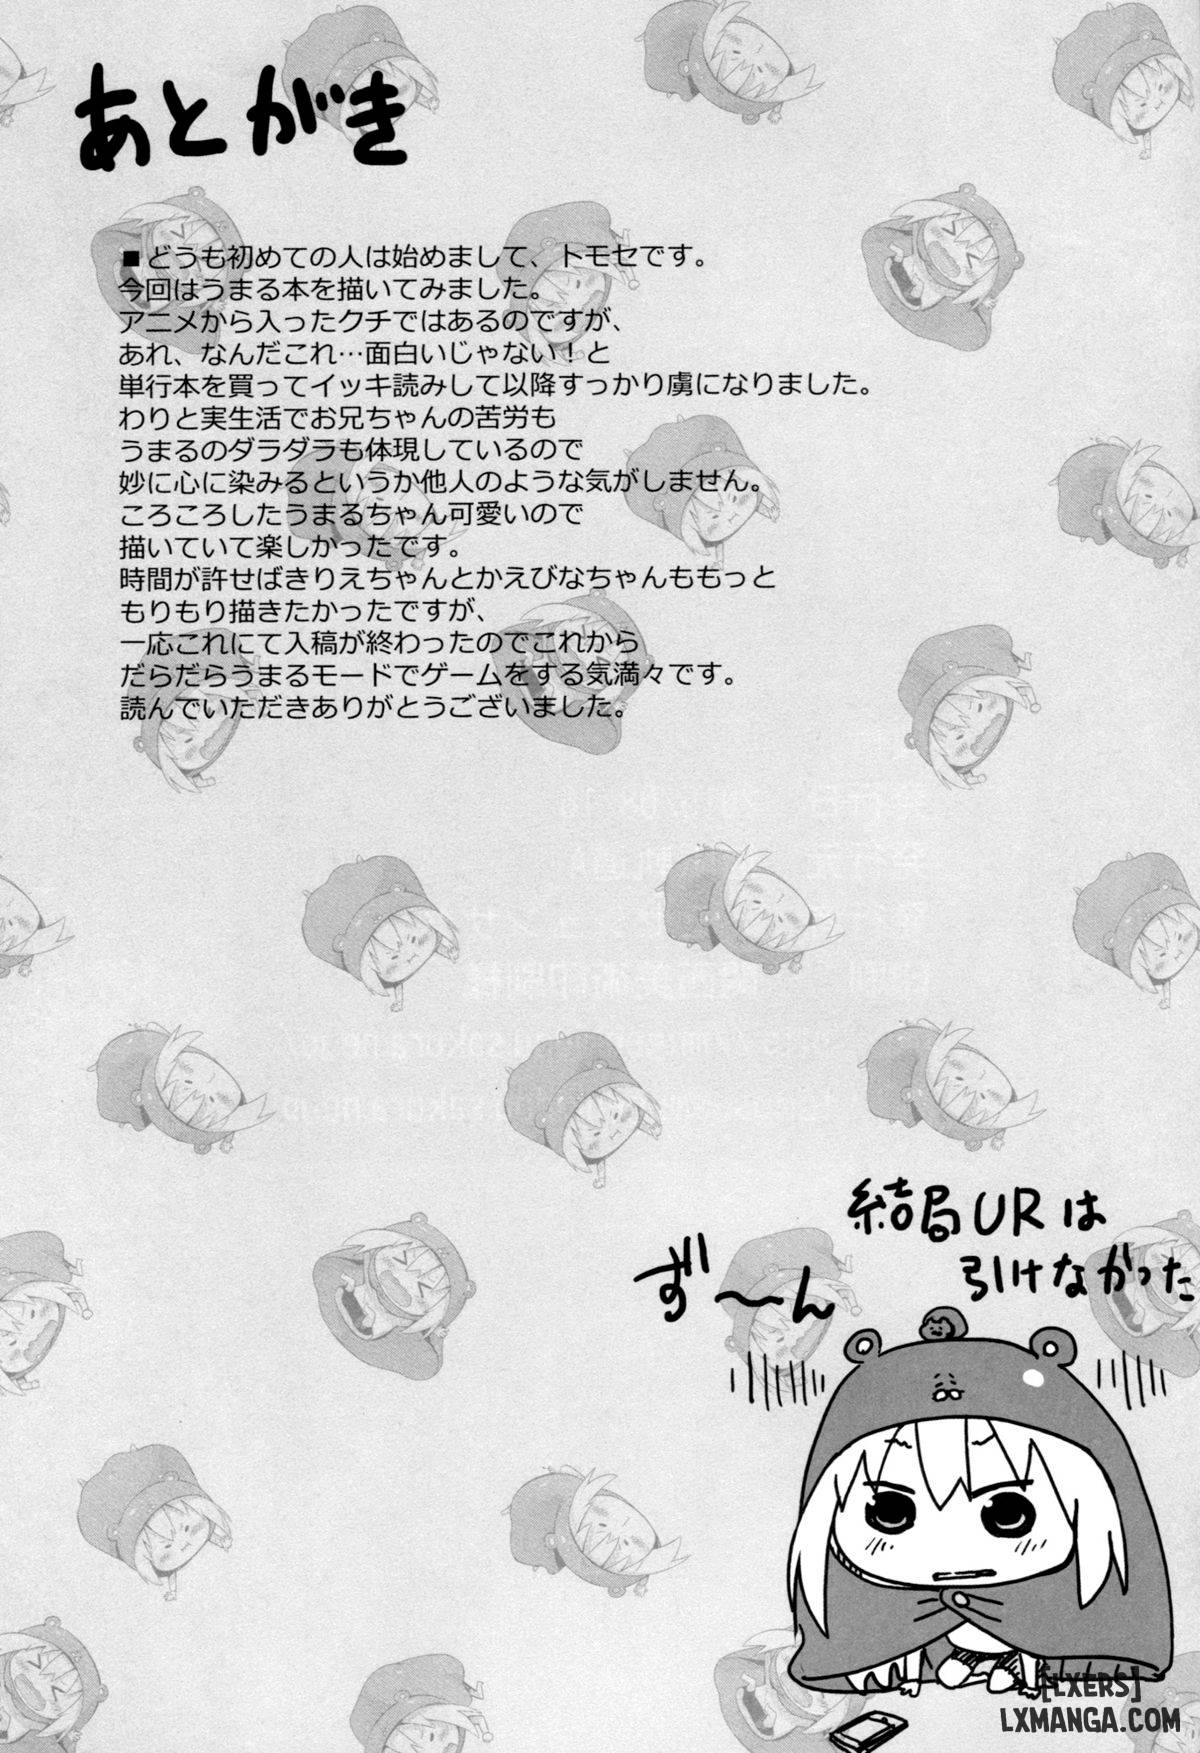 あとがき
■どうも初めての人は始めまして、トモセです。
今回はうまる本を描いてみました。
アニメから入ったクチではあるのですが、
あれ、なんだこれ…面白いじゃない！と
単行本を買ってイッキ読みして以降すっかり虜になりました。
わりと実生活でお兄ちゃんの苦労も
うまるのダラダラも体現しているので
妙に心に染みるというか他人のような気がしません。
ころころしたうまるちゃん可愛いので
描いていて楽しかったです。
時間が許せばきりえちゃんとかえびなちゃんももっと
もりもり描きたかったですが、
一応これにて入稿が終わったのでこれから
だらだらうまるモードでゲームをする気満々です。
読んでいただきありがとうございました。
結局URは
引けなかった
ず〜ん
[LXERS]
LXMANGA.COM